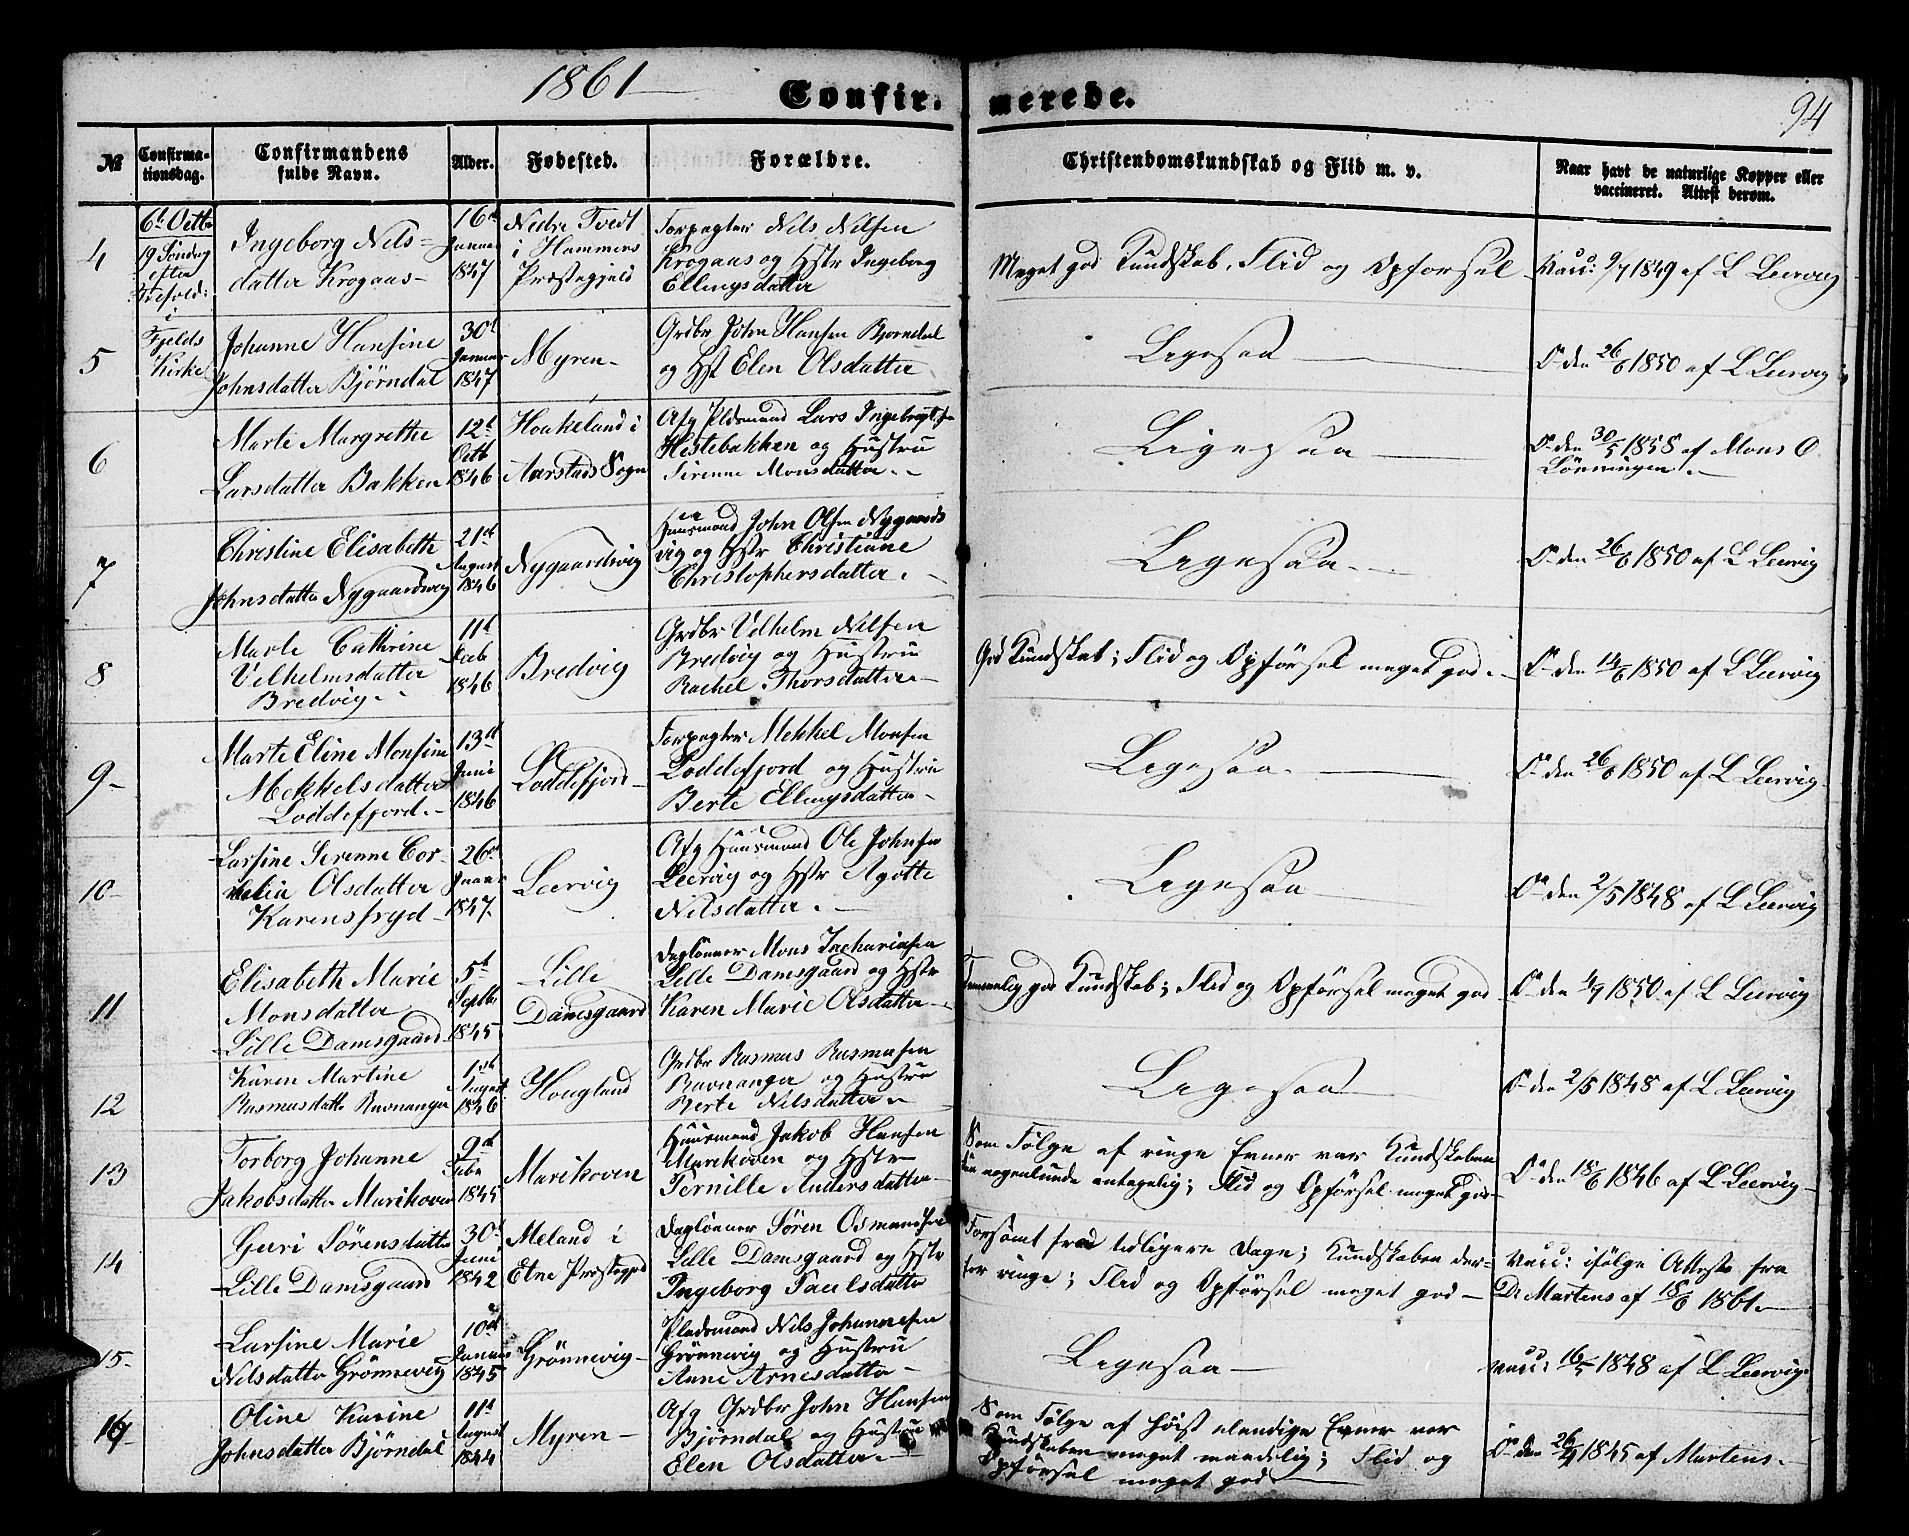 1861
Confir- merede.
94
№
Confirma-
tionsdag.
Confirmandens
fulde Navn.
Alder.
Fødested.
Forældre.
Christendomskundskab og Flid m. v.
Naar havt de naturlige Kopper eller
vaccineret. Attest derom.
4
6t Octb
19 Søndag
efter
Trefold:
i
Fjelds
Kirke
Ingeborg Nils-
datter Krogaas-
16d
Januar
1847
Nedre Tvedt
i Hammers
Præstegjeld
Forpagter Nils Nilsen
Krogaas og Hstr Ingeborg
Ellingsdatter
Meget god Kundskab, Flid og Opførsel
Vacc: 9/7 1849 af L Leervig
5
Johanne Hansine
Johnsdatter Bjørndal
30d
Januar
1847
Myren-
Grdbr John Hansen Bjørndal
og Hst Elen Olsdatter
Ligesaa
O den 26/6 1850 af L Leervig
6
Marte Margrethe
Larsdatter Bakken
12t
Octb
1846
Haakeland i
Aarstads Sogn
Afg Pladsmand Lars Ingebrigtsen
Hestebakken og Hustru
Sirenne Monsdatter.-
Ligesaa
O den 30/5 1858 af Mons O
Lönningen.-
7
Christine Elisabeth
Johnsdatter Nygaardsvig
21d
August
1846
Nygaardsvig
Huusmand John Olsen Nygaards
vig og Hstr Christiane
Christophersdatter.-
Ligesaa.
O den 26/6 1850 af L Leervig
8
Marte Cathrine
Vilhelmsdatter
Bredvig.-
11d
Feb
1846
Bredvig
Grdbr Vilhelm Nilsen
Bredvig og Hustru
Rachel Thorsdatter-
God Kundskab; Flid og Opførsel meget god.-
O den 14/6 1850 af L Leervig
9-
Marte Eline Monsine
Mekkelsdatter
Loddefjord.-
13d
Juni
1846
Loddefjord
Forpagter Mekkel Monsen
Loddefjord og Hustru
Berte Ellingsdatter-
Ligesaa.
O den 26/6 1850 af L Leervig
10-
Larsine Serenne Cor-
nelia Olsdatter
Karensfryd-
26d
Januar
1847.
Leervig
Afg Huusmand Ole Johnsen
Leervig og Hstr Agotte
Nilsdatter.-
Ligesaa
O den 2/5 1848 af L Leervig
11
Elisabeth Marie
Monsdatter
Lille Damsgaard
5t
Septbr
1845
Lille
Damsgaard
Dagløner Mons Zachariasen
Lille Damsgaard og Hstr
Karen Marie Olsdatter-
Temmelig god Kundskab; Flid og Opførsel meget god
O den 4/9 1850 af L Leervig
12
Karen Martine
Rasmusdatter Ravnanger
1st
August
1846
Hougland
Grdbr Rasmus Rasmusen
Ravnanger og Hustru
Berte Nilsdatter-
Ligesaa
O den 2/5 1848 af L Leervig
13
Torborg Johanne
Jakobsdatter Marikoven
9d
Febr
1845
Marikoven
Huusmand Jakob Hansen
Marikoven og Hstr
Pernille Andersdatter-
Som Følge af ringe Evner var Kundskaben
kun nogenlunde antagelig; Flid og Opførsel meget god-
O den 18/6 1846 af L Leervig-
14
Guri Sörensdatter
Lille Damsgaard
30d
Juni
1842
Meland i
Etne Præstegjeld
Dagløner Søren Osmundsen
Lille Damsgaard og Hstr
Ingeborg Paulsdatter
Forsømt fra tidligere Dage; Kundskaben der-
for ringe; Flid og Opførsel meget god-
Vacc: ifølge Attest fra
Dr Martens af 18/6 1861.-
15-
Larsine Marie
Nilsdatter Grönnevig
10d
Januar
1845
Grönnevig-
Pladsmand Nils Johannesen
Grönnevig og Hustru
Anne Arnesdatter
Ligesaa-
Vacc: 16/5 1848 af L Leervig
16
Oline Karine
Johnsdatter Bjørndal
11d
August
1844
Myren-
Afg Grdbr John Hansen
Bjørndal og Hustru
Elen Olsdatter.-
Som Følge af høist elendige Evner var
Kundskaben meget maadelig; Flid og
Opførsel meget god
O den 26/4 1845 af Martens.